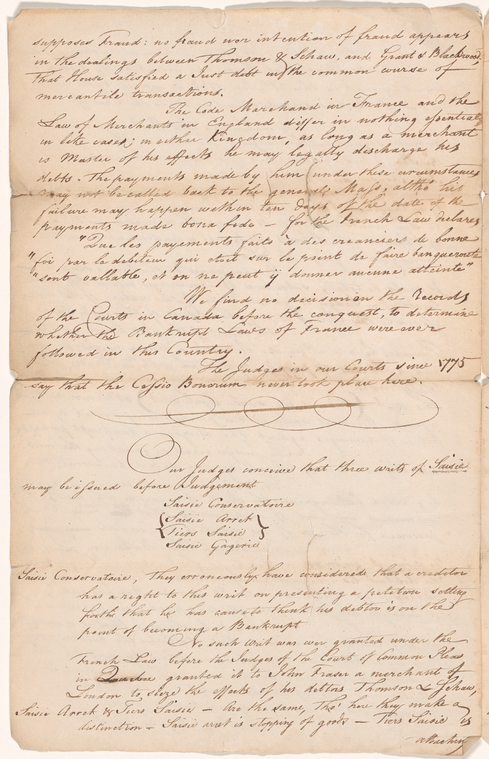 supposes Fraud: no fraud nor intention of fraud appears
in the dealings between Thomson & Schaw, and Grant & Blackwood,
that House satisfied a Just debt in the common course of
mercantile transactions.
The Code Marchand in France and the
Law of Merchants in England differ in nothing essential
in like cases; in either Kingdom, as long as a merchant
is Master of his effects he may legally discharge his
debts. The payments made by him under these circumstances
may not be called back to the general Mass, altho' his
failure may happen within ten days of the date of the
payments made bona fide — for the French Law declares
"Que les payements faits a des creanciers de bonne
"foi par le debiteur qui etait sur le point de faire banqueroute
"sont vallable, et on ne peut y donner aucune atteinte"
We find no decision in the Records
of the Courts in Canada before the conquest, to determine
whether the Bankrupt Laws of France were ever
followed in this Country.
The Judges in our Courts since 1775
say that the Cessio Bonorum never took place here.
Our Judges conceive that three writs of Saisie
may be issued before Judgement
Saisie Conservatoire
{Saisie Arret}
{Tiers Saisie}
Saisie Gagerie
Saisie Conservatoire, They erroneously have considered that a creditor
has a right to this writ on presenting a petition setting
forth that he has cause to think his debtor is on the
point of becoming a Bankrupt
No such writ was ever granted under the
French Law before the Judges of the Court of Common Pleas
in Quebec granted it to John Fraser a merchant of
London to seize the effects of his debtors Thomson & Schaw,
Saisie Arret & Tiers Saisie — Are the same, Tho' here they make a
distinction — Saisie arret is stopping of goods — Tiers Saisie is
attaching